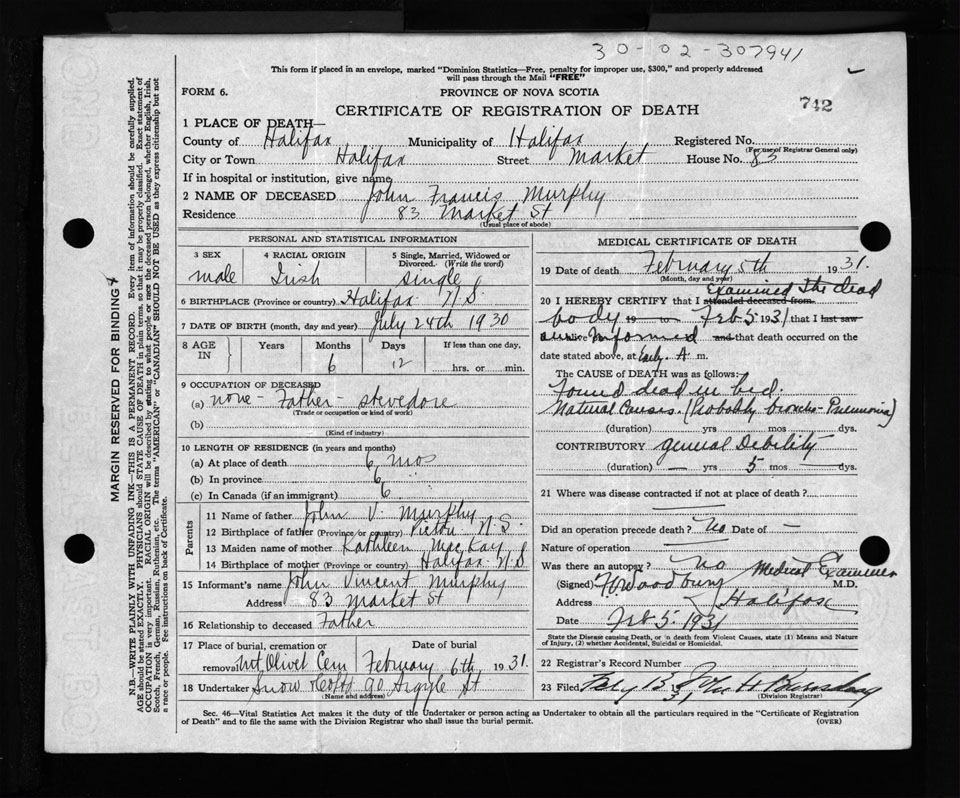 30-02-307941
This form if placed in an envelope, marked "Dominion Statistics—Free, penalty for improper use, $300," and properly addressed
will pass through the Mail "FREE"
FORM 6.
PROVINCE OF NOVA SCOTIA
CERTIFICATE OF REGISTRATION OF DEATH
742
1 PLACE OF DEATH—
County of Halifax Municipality of Halifax Registered No.
(For use of Registrar General only)
City or Town Halifax Street Market House No. 83
If in hospital or institution, give name
2 NAME OF DECEASED John Francis Murphy
Residence 83 Market St
(Usual place of abode)
PERSONAL AND STATISTICAL INFORMATION
3 SEX 4 RACIAL ORIGIN 5 Single, Married, Widowed or
Divorced. (Write the word)
male Irish single
6 BIRTHPLACE (Province or country) Halifax N.S.
7 DATE OF BIRTH (month, day and year) July 24th 1930
8 AGE IN Years Months Days If less than one day,
6 12 hrs. or min.
9 OCCUPATION OF DECEASED
(a) none - Father - stevedore
(Trade or occupation or kind of work)
(b)
(Kind of industry)
10 LENGTH OF RESIDENCE (in years and months)
(a) At place of death 6 mos
(b) In province 6 "
(c) In Canada (if an immigrant) 6 "
Parents
11 Name of father John V. Murphy
12 Birthplace of father (Province or country) Pictou N.S.
13 Maiden name of mother Kathleen MacKay
14 Birthplace of mother (Province or country) Halifax N.S
15 Informant's name John Vincent Murphy
Address 83 Market St
16 Relationship to deceased Father
17 Place of burial, cremation or Date of burial
removal Mt Olivet Cem February 6th 1931.
18 Undertaker Snow & Co Ltd 90 Argyle St
(Name and address)
MEDICAL CERTIFICATE OF DEATH
19 Date of death February 5th 1931.
(Month, day and year)
Examined the dead
20 I HEREBY CERTIFY that I attended deceased from
body 19 to Feb 5 1931 that I last saw
alive Informed and that death occurred on the
date stated above, at Early A m.
The CAUSE OF DEATH was as follows:
Found dead in bed.
Natural Causes. (Probably broncho-Pneumonia)
(duration) yrs mos dys.
CONTRIBUTORY general Debility
(duration) — yrs 5 mos — dys.
21 Where was disease contracted if not at place of death?
Did an operation precede death? No Date of —
Nature of operation
Was there an autopsy? No Medical Examiner
(Signed) M.D.
Address Halifax
Date Feb 5 1931
State the Disease causing Death, or in death from Violent Causes, state (1) Means and Nature
of Injury, (2) whether Accidental, Suicidal or Homicidal.
22 Registrar's Record Number
23 Filed
(Division Registrar)
Sec. 46—Vital Statistics Act makes it the duty of the Undertaker or person acting as Undertaker to obtain all the particulars required in the "Certificate of Registration
of Death" and to file the same with the Division Registrar who shall issue the burial permit. (OVER)
MARGIN RESERVED FOR BINDING
N.B.—WRITE PLAINLY WITH UNFADING INK—THIS IS A PERMANENT RECORD. Every item of information should be carefully supplied.
AGE should be stated EXACTLY. PHYSICIANS should STATE CAUSE OF DEATH in plain terms, so that it may be properly classified. Exact statement of
OCCUPATION is very important. RACIAL ORIGIN will be described by stating to what people or race the deceased person belonged, whether English, Irish,
Scotch, French, German, Russian, Ruthenian, etc. The terms "AMERICAN" or "CANADIAN" SHOULD NOT BE USED as they express citizenship but not
a race or people. Fee instructions on back of Certificate.